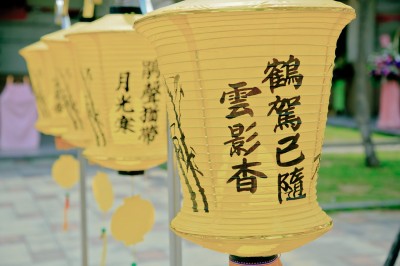 鶴駕已隨
雲影杳
鵑聲猶帶
月光寒